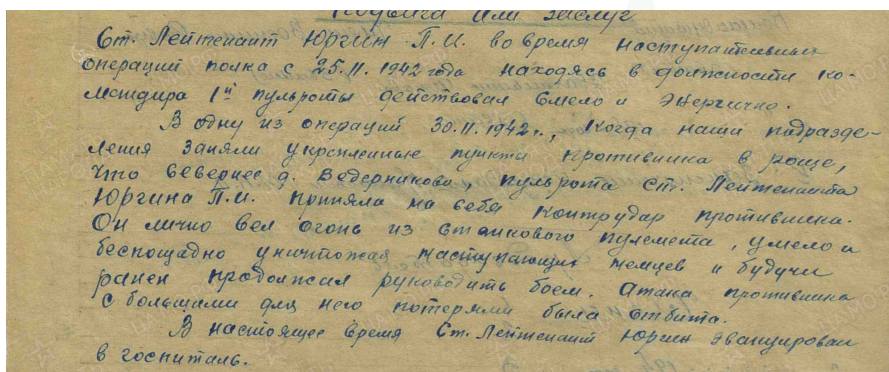 подвига или заслуг
Ст. Лейтенант Юргин П.И. во время наступательных
операций полка с 25.11.1942 года находясь в должности ко-
мандира 1й пульроты действовал смело и энергично.
В одну из операций 30.11.1942г., когда наши подразде-
ления заняли укрепленные пункты противника в роще,
что севернее д. Ведерниково, пульрота ст. Лейтенанта
Юргина П.И. приняла на себя контрудар противника.
Он лично вел огонь из станкового пулемета, умело и
беспощадно уничтожая наступающих немцев и будучи
ранен продолжал руководить боем. Атака противника
с большими для него потерями была отбита.
В настоящее время Ст. Лейтенант Юргин эвакуирован
в госпиталь.